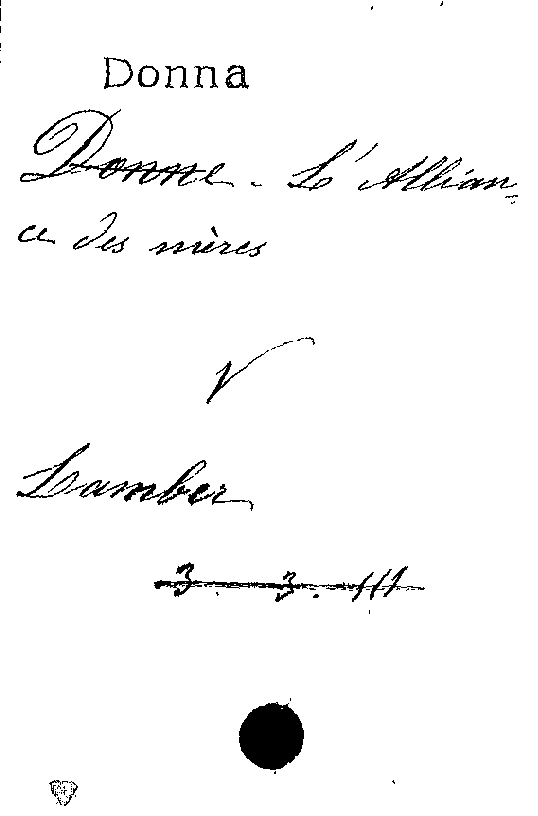 Donna
Donne - L'Allian=
ce des mères
V
Lamber
3. 3. 111